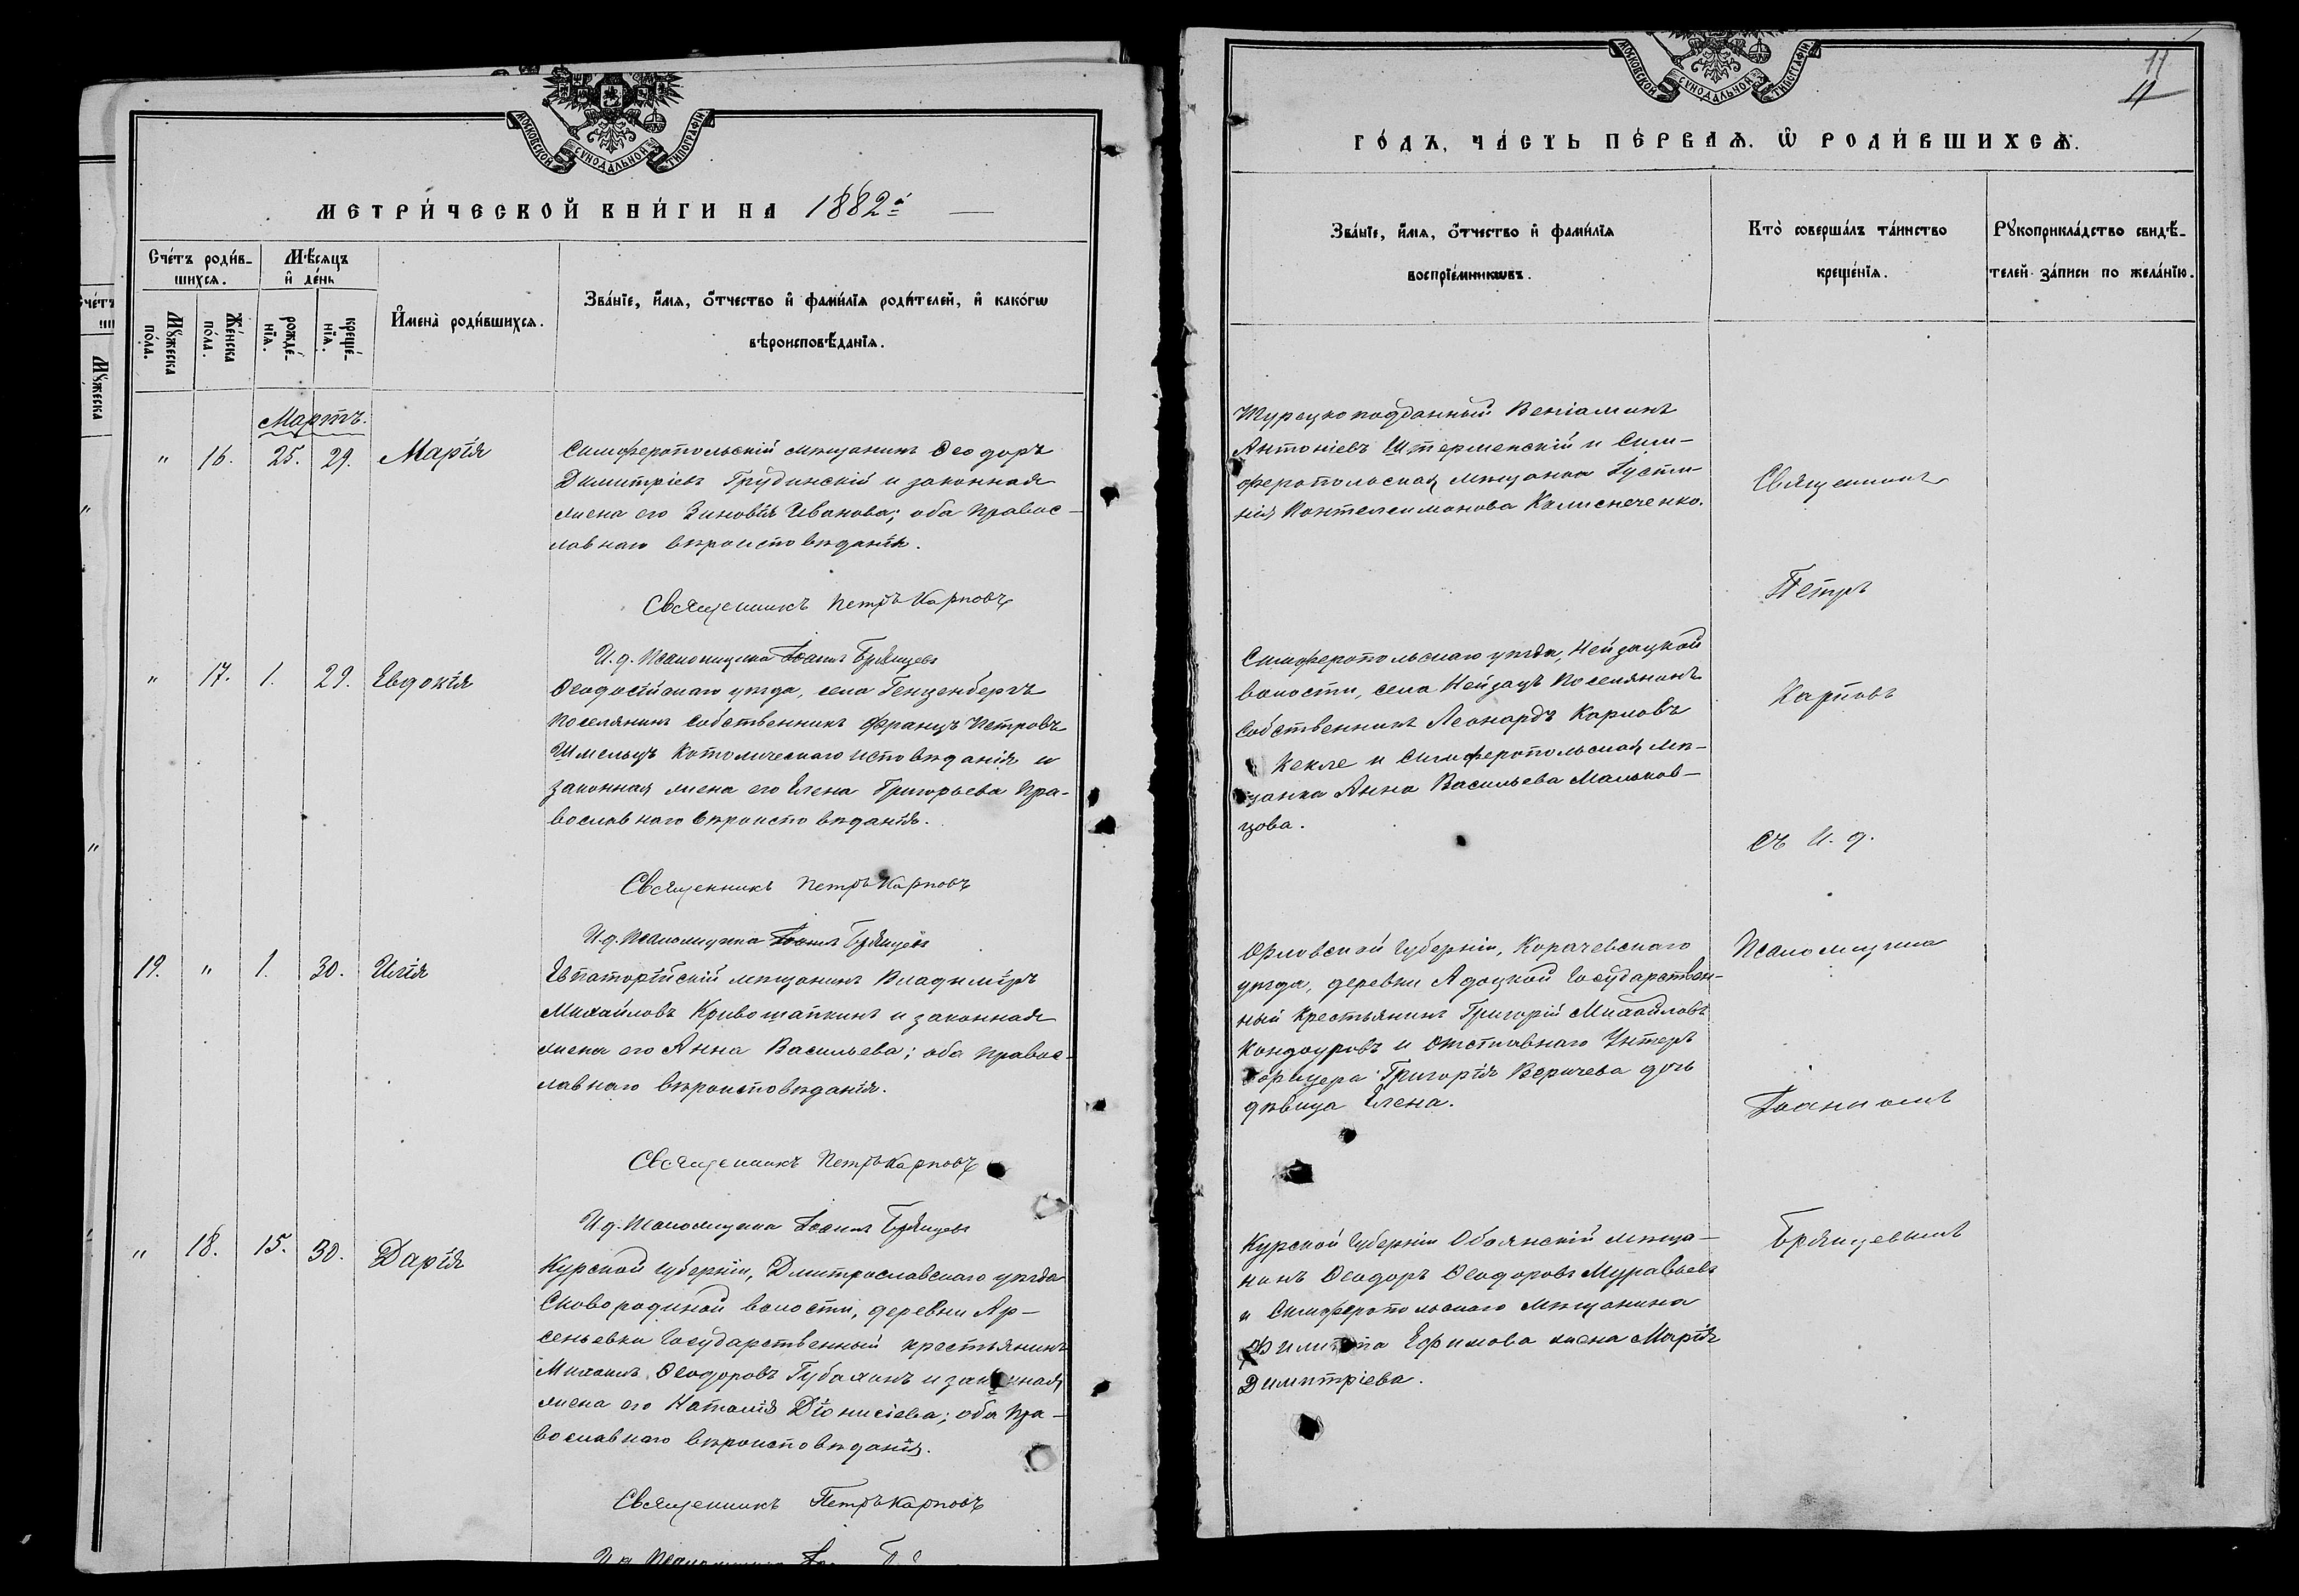 МОСКОВСКОЙ СѴНОДАЛЬНОЙ ТИПОГРАФІИ.
МЕТРИ́ЧЕСКОЙ КНИ́ГИ НА 1882й
Сче́тъ роди́в-
шихсѧ.
Мѣ́сѧцъ
и҆ де́нь
Мꙋ́жеска
по́ла.
Же́нска
по́ла.
рожде́-
нїѧ.
креще́-
нїѧ.
И҆мена̀ роди́вшихсѧ.
Зва́нїе, и҆́мѧ, ѻ҆́тчество и҆ фами́лїѧ роди́телей, и҆ како́гѡ
вѣроисповѣ́данїѧ.
Мартъ.
" 16. 25. 29. Марія
Симферопольскій мѣщанинъ Ѳеодоръ
Димитріевъ Грудинскій и законная
жена его Зиновія Иванова; оба правос-
лавнаго вѣроисповѣданія.
Священникъ Петръ Карповъ
И. д. Псаломщика Іоаннъ Брянцевъ
" 17. 1. 29. Евдокія
Ѳеодосійскаго уѣзда, села Гейценбергъ
поселянинъ собственникъ Францъ Петровъ
Шмельцъ Католическаго исповѣданія и
законная жена его Елена Григорьева Пра-
вославнаго вѣроисповѣданія.
Священникъ Петръ Карповъ
И. д. Псаломщика Іоаннъ Брянцевъ
19. " 1. 30. Илія
Евпаторійскій мѣщанинъ Владиміръ
Михайловъ Кривошапкинъ и законная
жена его Анна Васильева; оба правос-
лавнаго вѣроисповѣданія.
Священникъ Петръ Карповъ
И. д. Псаломщика Іоаннъ Брянцевъ
" 18. 15. 30. Дарія
Курской Губерніи, Дмитрославскаго уѣзда
Сковородиной волости, деревни Ар-
сеньевки Государственный крестьянинъ
Михаилъ Ѳеодоровъ Губанинъ и законная
жена его Наталія Діонисіева; оба Пра-
вославнаго вѣроисповѣданія.
Священникъ Петръ Карповъ
МОСКОВСКОЙ СѴНОДАЛЬНОЙ ТИПОГРАФІИ.
11
ГО́ДЪ, ЧА́СТЬ ПЕ́РВАѦ, Ѡ҆ РОДИ́ВШИХСѦ.
Зва́нїе, и҆́мѧ, ѻ҆́тчество и҆ фами́лїѧ
воспрїе́мникѡвъ.
Кто̀ соверша́лъ та́инство
креще́нїѧ.
Рꙋкоприкла́дство свидѣ́-
телей за́писи по жела́нїю.
Турецко подданный Веніаминъ
Антоніевъ Штерменскій и Сим-
феропольская мѣщанка Іусти-
нія Пантелеимонова Колисниченко.
Симферопольскаго уѣзда, Нейзацкой
волости, села Нейзацъ поселянинъ
собственникъ Леонардъ Карловъ
Кекле и Симферопольская мѣ-
щанка Анна Васильева Мальков-
цова.
Орловской Губерніи, Карачевскаго
уѣзда, деревни Адоцкой Государствен-
ный крестьянинъ Григорій Михайловъ
Кондауровъ и Отставнаго Унтеръ
Офицера Григорія Веричева дочь
дѣвица Елена.
Курской Губерніи Обоянскій мѣща-
нинъ Ѳеодоръ Ѳеодоровъ Муравьевъ
и Симферопольскаго мѣщанина
Филиппа Ефимова жена Марія
Димитріева.
Священникъ
Петръ
Карповъ
съ И. д.
Псаломщика
Іоанномъ
Брянцевымъ